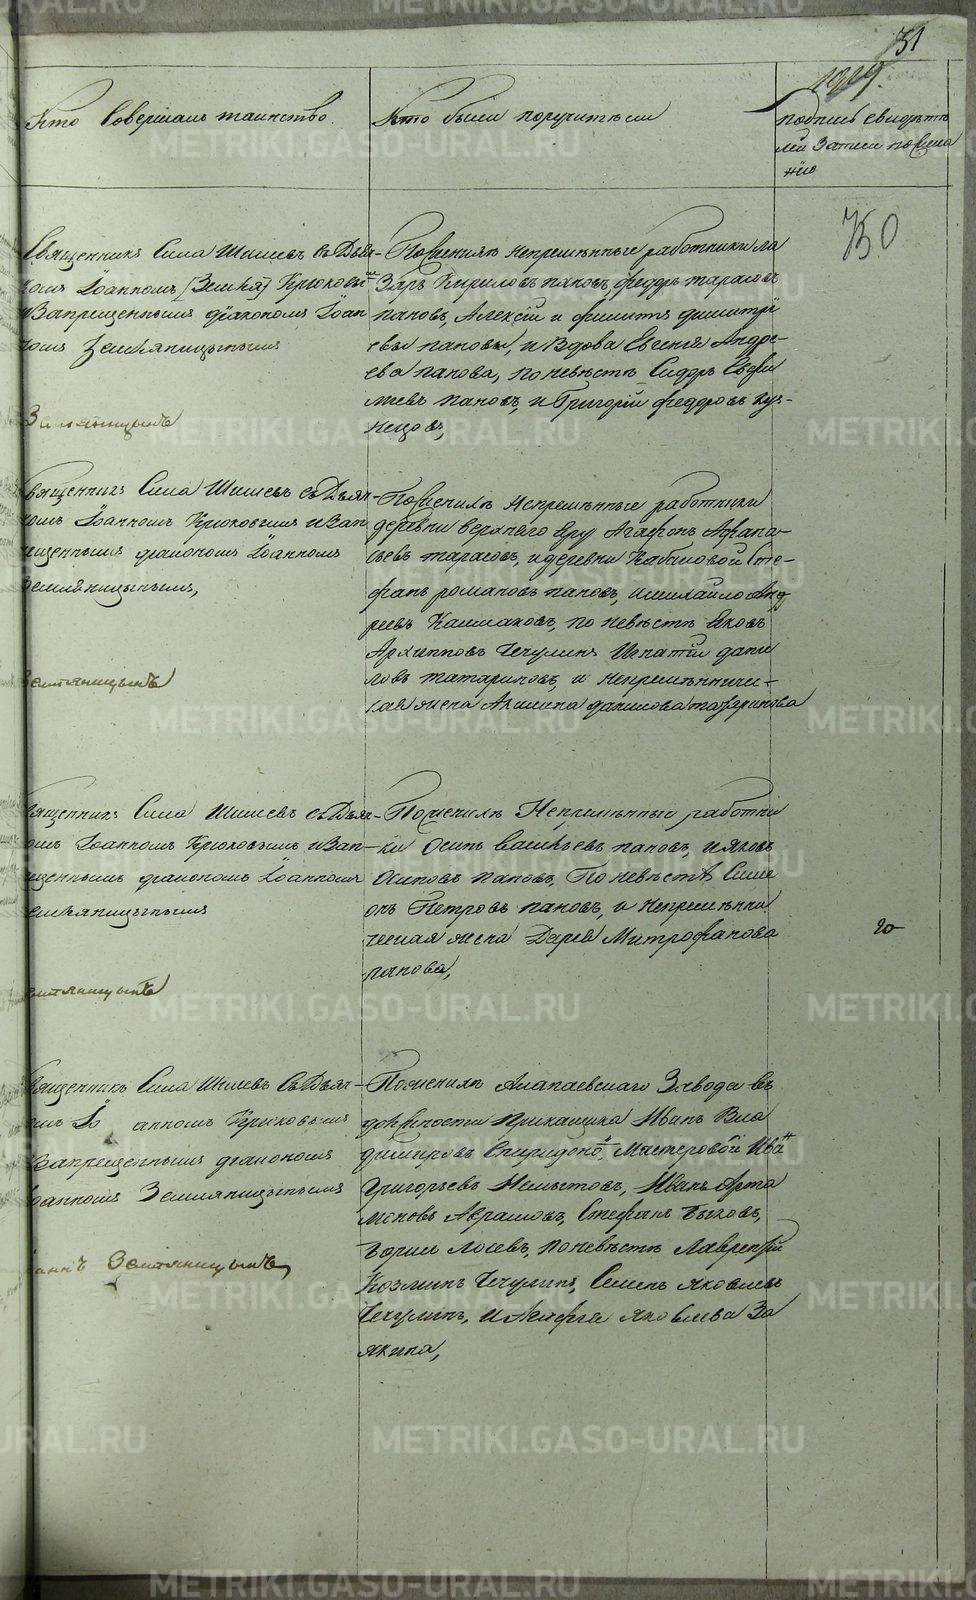 731
1019.
Кто Совершалъ таинство.
Кто были поручители
подпись свидѣте
лей Записи пожела
нію
750
Священникъ Сила Шишевъ съ Дьяч-
комъ Іоанномъ Крюковы
и Запрещеннымъ діакономъ Іоан
номъ Земляницынымъ
Земляницынъ
По женихѣ непремѣнные работники ла
заръ Кириловъ пановъ, феодоръ тарасовъ
пановъ, Алексѣй и филипъ димитрі
евы пановы, и Вдова Евгенія Андре-
ева панова, по невѣстѣ Сидоръ
пановъ, и Григорій феодоровъ куз-
нецовъ,
Священникъ Сила Шишевъ съ Дьяч-
комъ Іоанномъ Крюковымъ и Зап
рещеннымъ діакономъ Іоанномъ
Земляницынымъ,
Земляницынъ
По женихѣ Непремѣнные работники
деревни верхняго Яру Агафонъ Афана-
сьевъ тарасовъ, и деревни Кабаковой Сте-
фанъ романовъ пановъ, и михайло Анд
реевъ по невѣстѣ Яковъ
Архиповъ Чечулинъ Игнатій дани
ловъ татариновъ, и непремѣнничи-
ская жена Акилина данилова татаринова
Священникъ Сила Шишевъ съ Дьяч-
комъ Іоанномъ Крюковымъ и Зап-
рещеннымъ діакономъ Іоанномъ
Земляницынымъ
Земляницынъ
По женихѣ Непремѣнные работни
ки Осипъ васильевъ пановъ, и яковъ
Осиповъ пановъ, По невѣстѣ Симе
онъ Петровъ пановъ, и непремѣнни
ческая жена Дарья Митрофанова
панова,
20
Священникъ Сила Шишевъ съ Дьяч-
комъ Іоанномъ Крюковымъ
и Запрещеннымъ діакономъ
Іоанномъ Земляницынымъ
Іоаннъ Земляницынъ
По женихѣ Алапаевскаго Завода въ
должности прикащика Иванъ Вла
димировъ Спиридоно, Мастеровой Ива
Григорьевъ Немытовъ, Иванъ Арта
моновъ Абрамовъ, Стефанъ Быковъ,
лосевъ, по невѣстѣ Лаврентій
Козминъ Чечулинъ, Семенъ яковлевъ
Чечулинъ, и яковлева За
якина,
METRIKI.GASO-URAL.RU